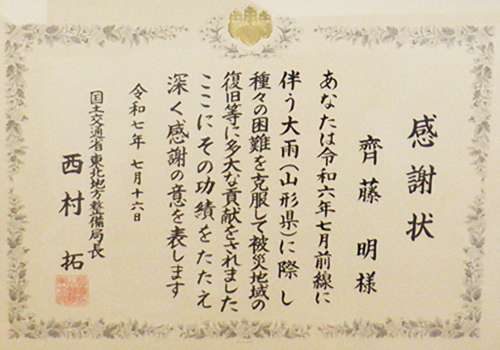 感謝状
齊藤明様
あなたは令和六年七月前線に
伴う大雨(山形県)に際し
種々の困難を克服して被災地域の
復旧等に多大な貢献をされました
ここにその功績をたたえ
深く感謝の意を表します
令和七年七月十六日
国土交通省東北地方整備局長
西村拓